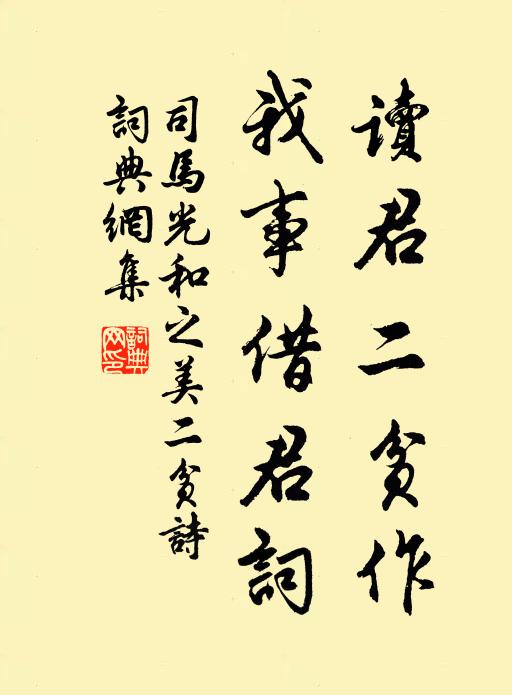 讀君二貧作
我事借君詞
司馬光和之美二貧詩
詞典網集
詞典網印